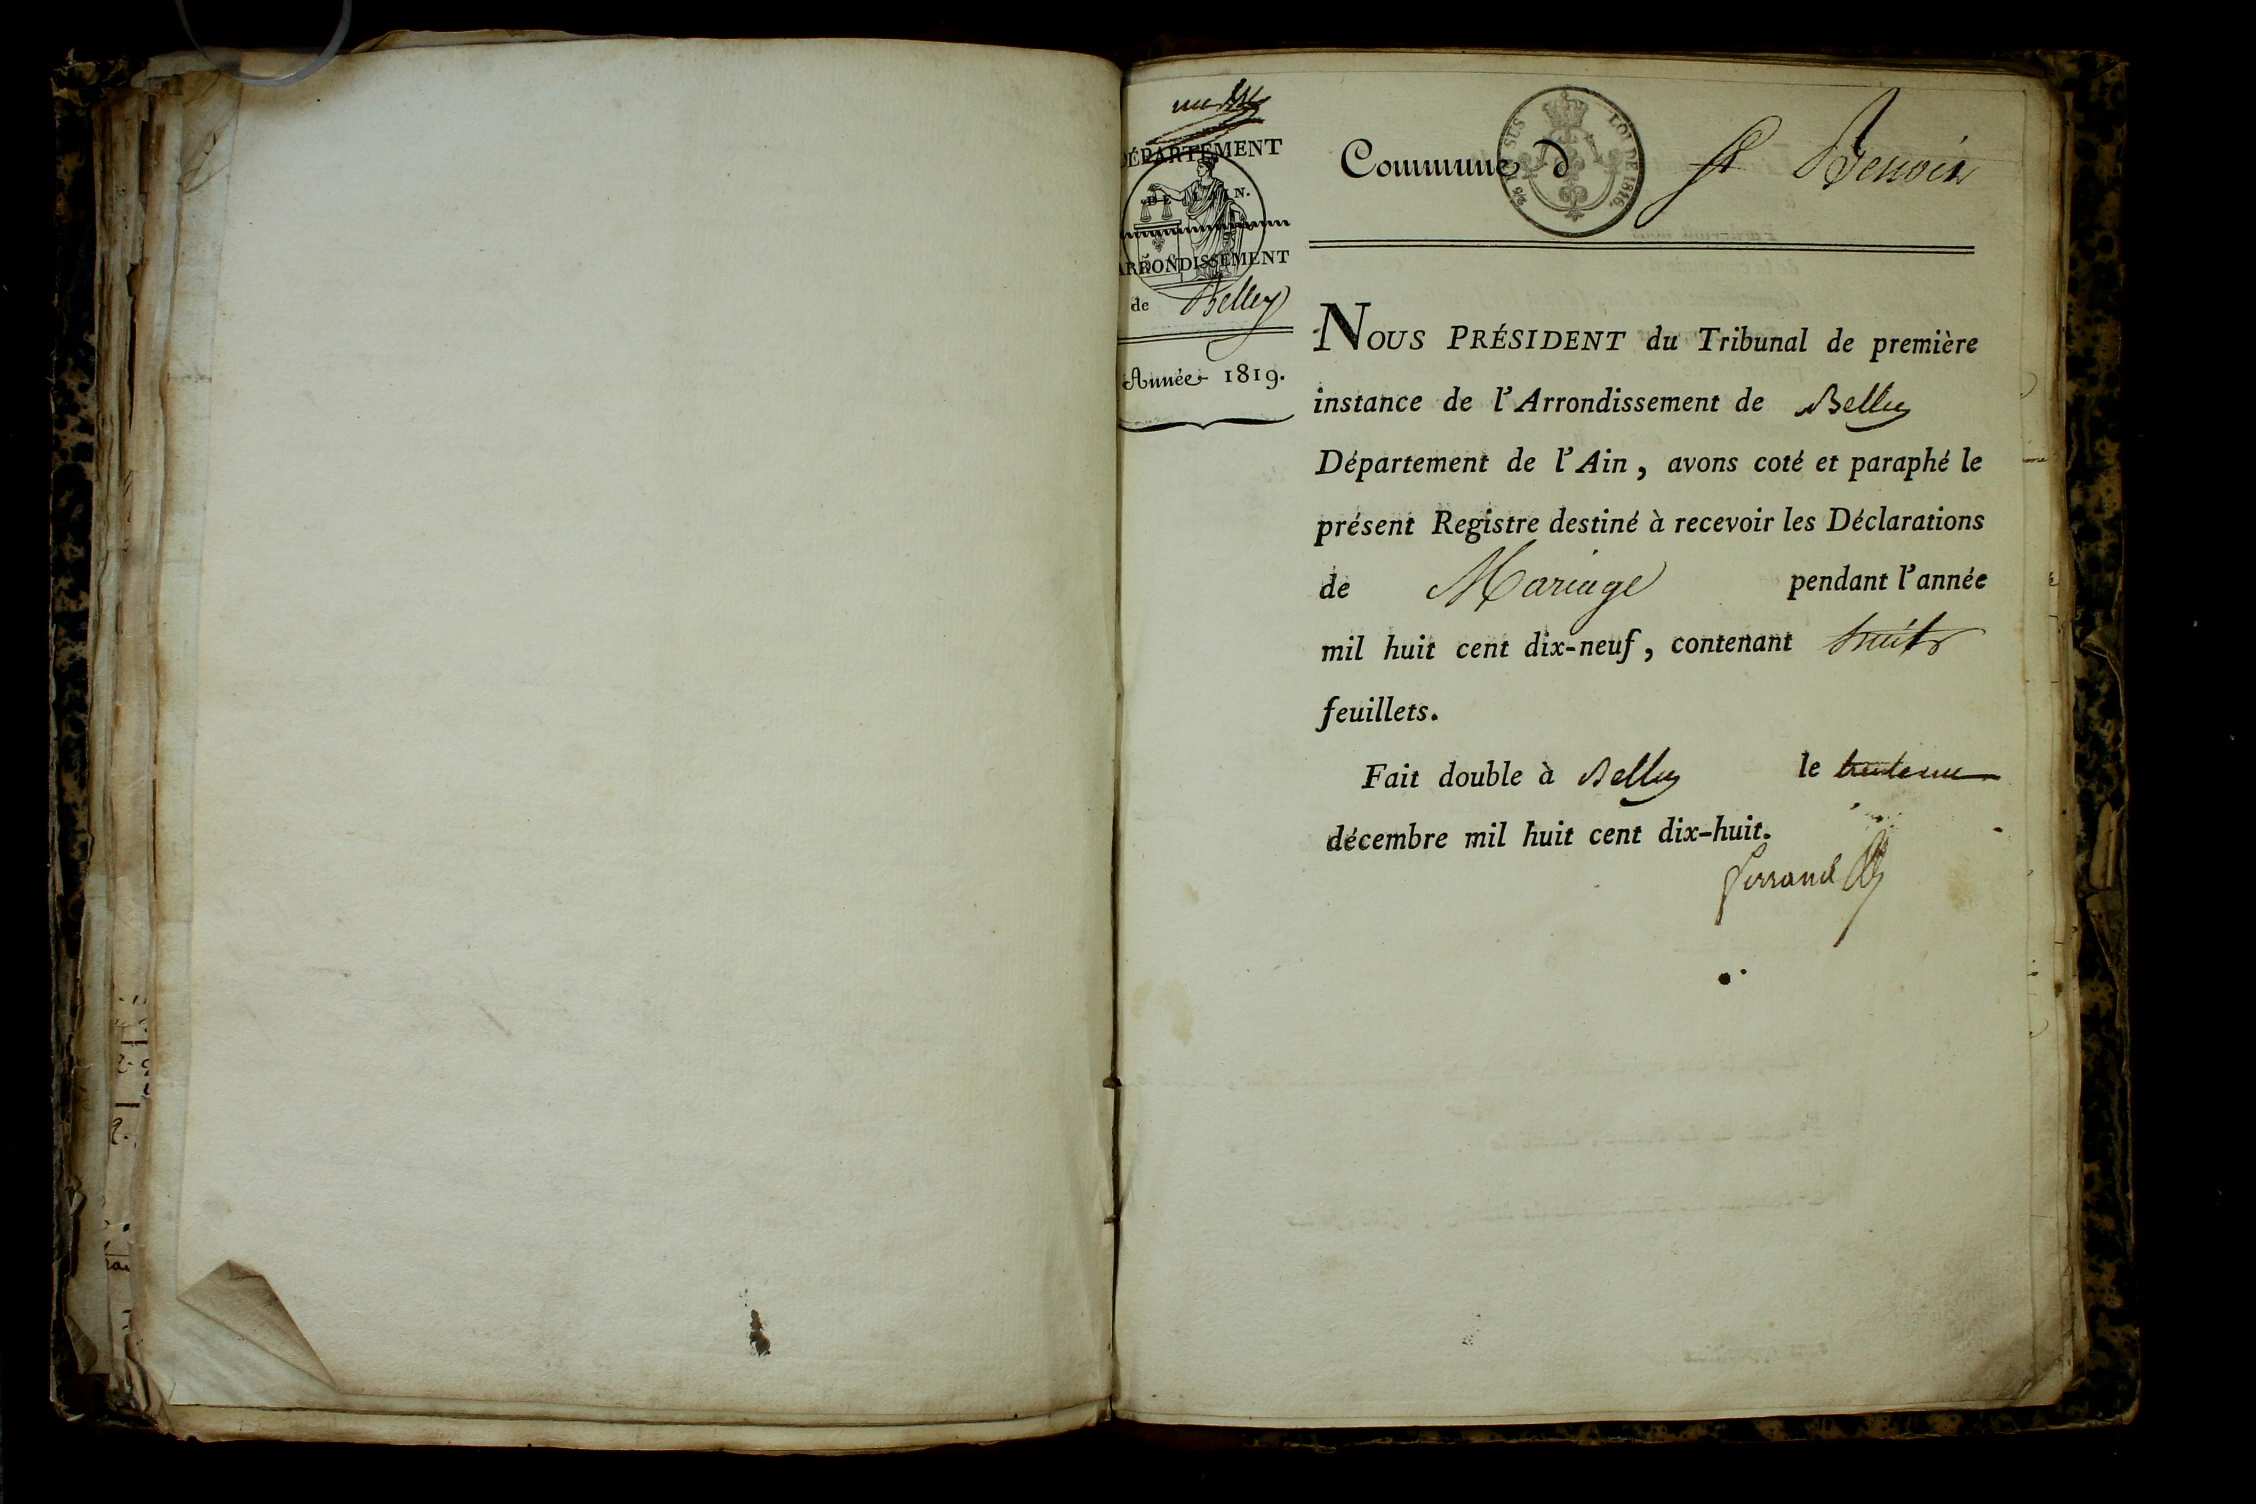 DÉPARTEMENT
DE L'AIN.
ARRONDISSEMENT
de Belley
Année 1819.
Commune d St Benoit
LOI DE 1816.
NOUS PRÉSIDENT du Tribunal de première
instance de l'Arrondissement de Belley
Département de l'Ain, avons coté et paraphé le
présent Registre destiné à recevoir les Déclarations
de Mariage pendant l'année
mil huit cent dix-neuf, contenant huit
feuillets.
Fait double à Belley le
décembre mil huit cent dix-huit.
Ferrand